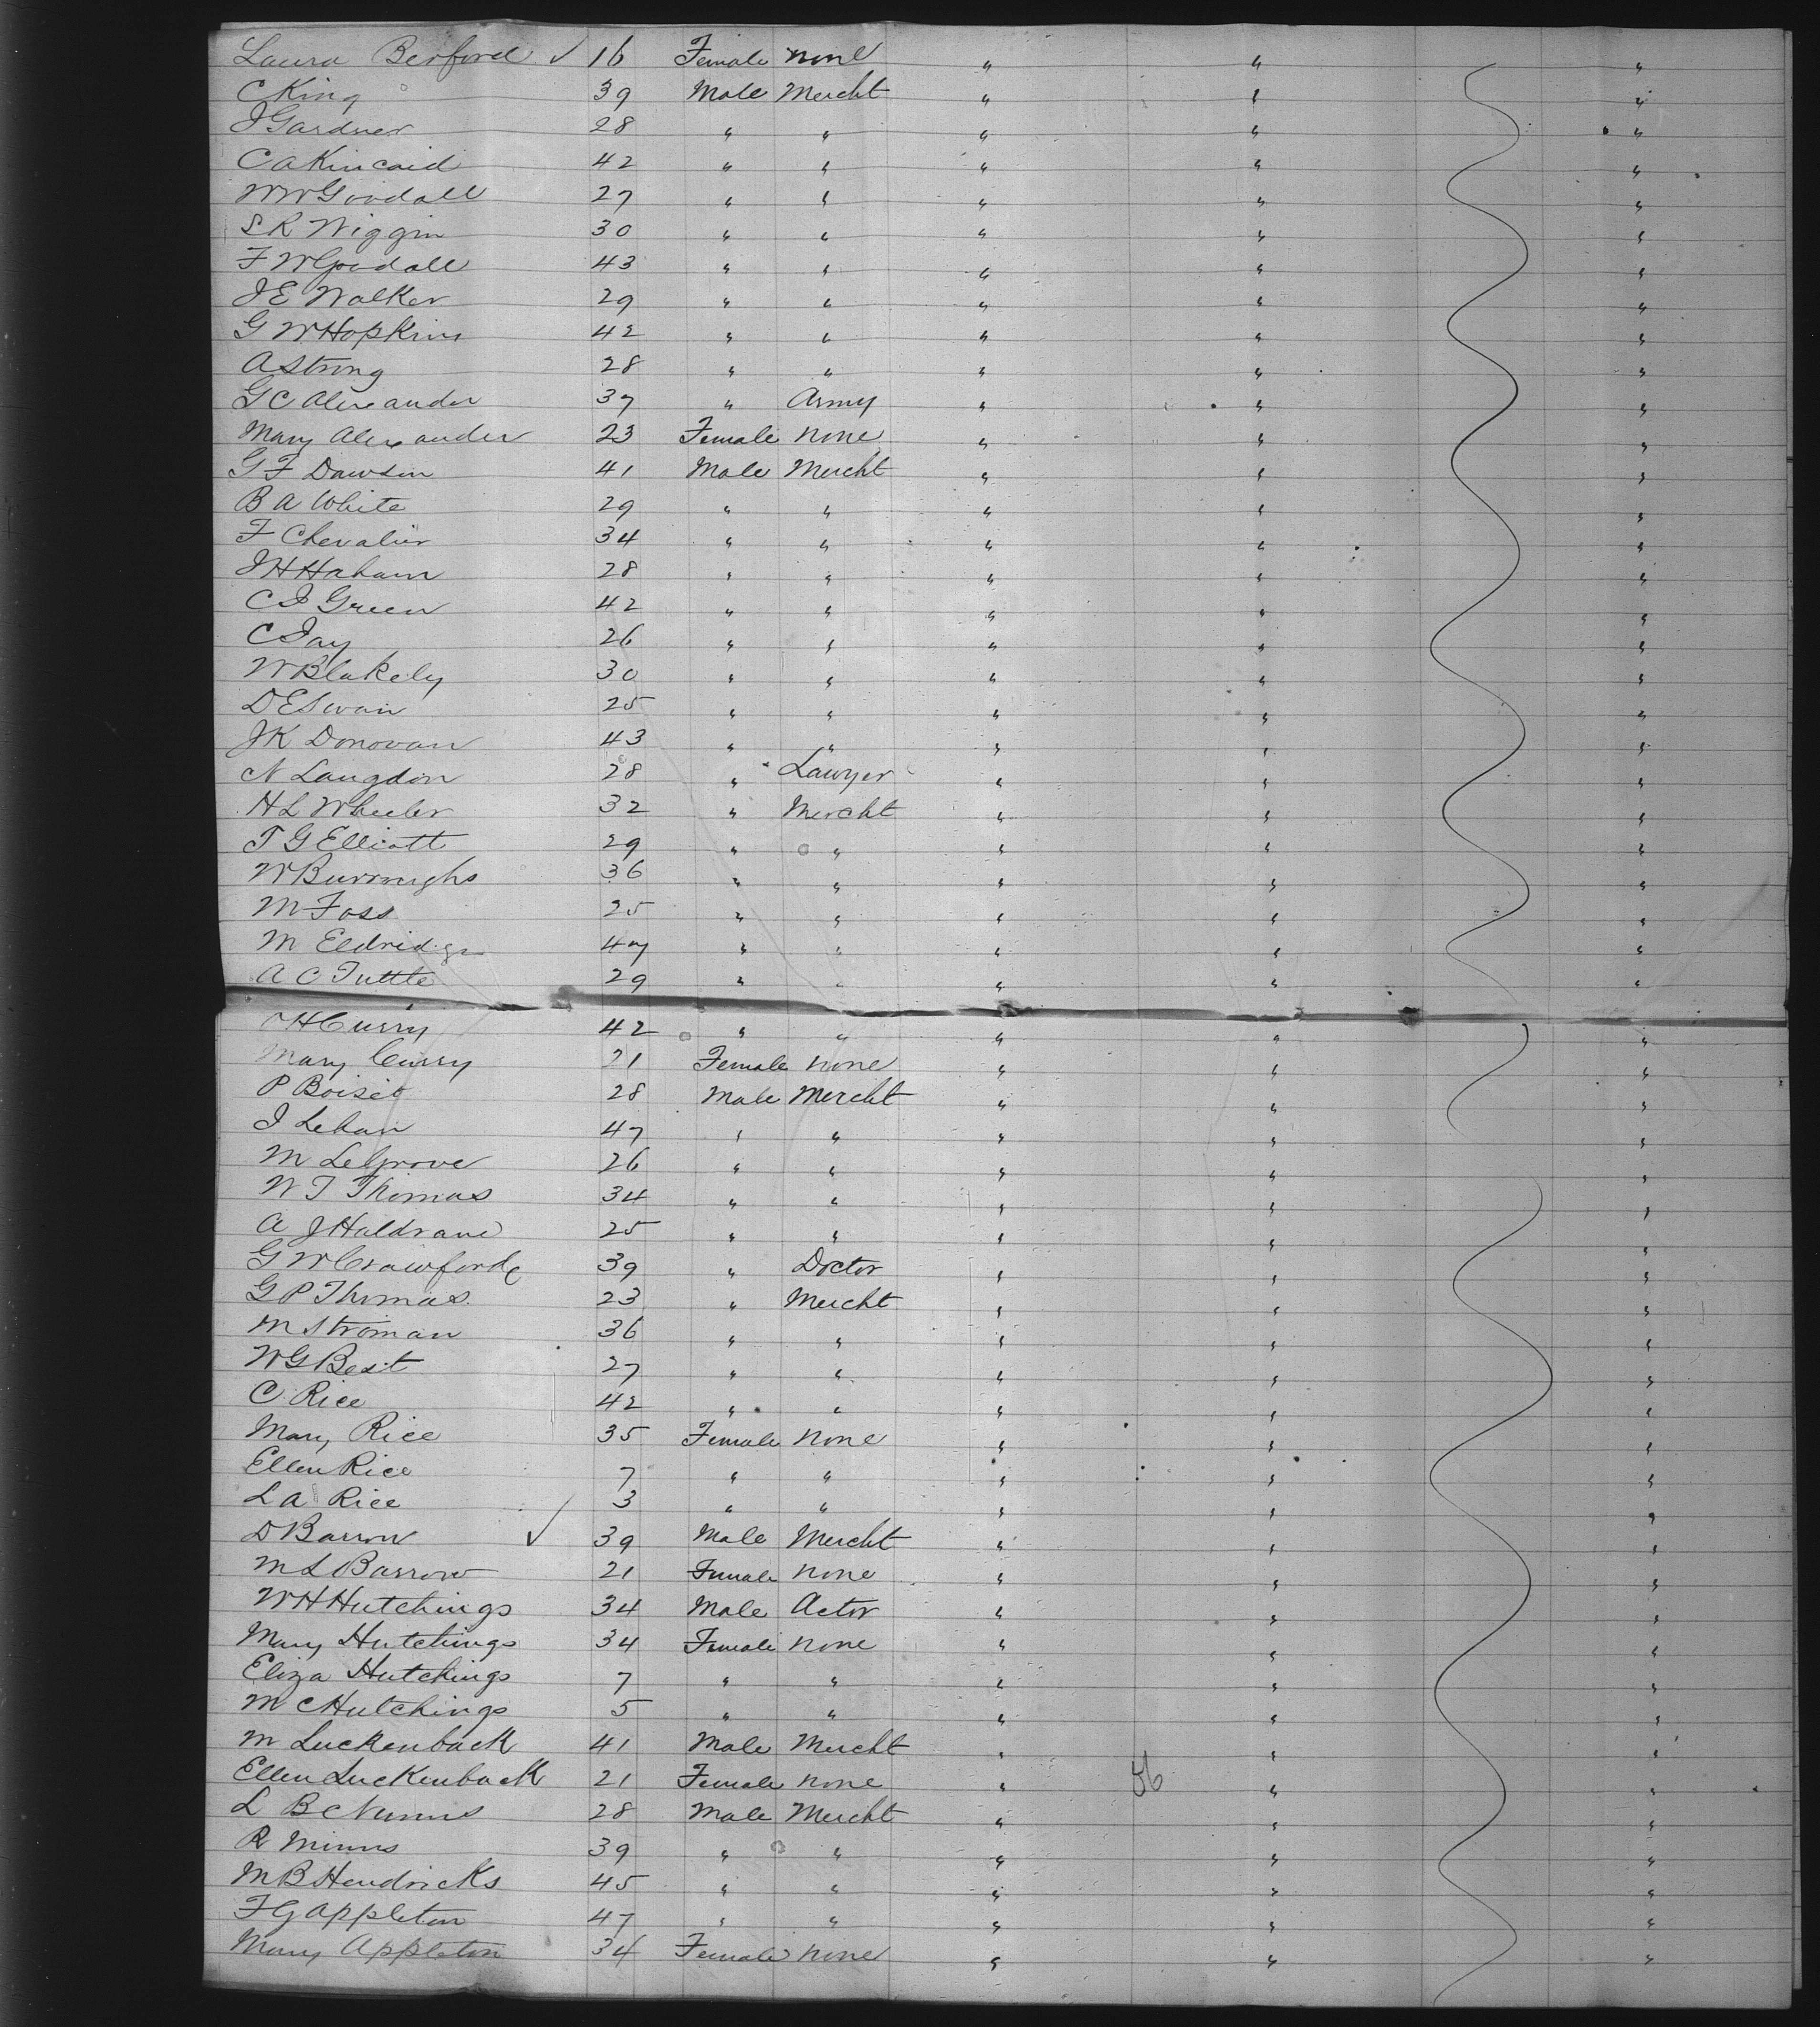 Laura Berford ✓ 16 Female none " " "
C King 39 Male Mercht " " "
J Gardner 28 " " " " "
C A Kincaid 42 " " " " "
W W Goodall 27 " " " " "
S R Wiggin 30 " " " " "
F W Goodall 43 " " " " "
J E Walker 29 " " " " "
G W Hopkins 42 " " " " "
A Strong 28 " " " " "
G C Alexander 37 " Army " " "
Mary Alexander 23 Female none " " "
G F Dawson 41 Male Mercht " " "
B A White 29 " " " " "
F Chevalier 34 " " " " "
J H Haham 28 " " " " "
C J Green 42 " " " " "
C Jay 26 " " " " "
W Blakely 30 " " " " "
D E Swain 25 " " " " "
J K Donovan 43 " " " " "
N Langdon 28 " Lawyer " " "
H L Wheeler 32 " Mercht " " "
T G Elliott 29 " " " " "
W Burroughs 36 " " " " "
M Foss 25 " " " " "
M Eldridge 47 " " " " "
A C Tuttle 29 " " " " "
C H Curry 42 " " " " "
Mary Curry 21 Female none " " "
P Boisie 28 Male Mercht " " "
J Lehan 47 " " " " "
M LeGrove 26 " " " " "
W T Thomas 34 " " " " "
A J Haldrane 25 " " " " "
G W Crawford 39 " Doctor " " "
G P Thomas 23 " Mercht " " "
M Stroman 36 " " " " "
W G Best 27 " " " " "
C Rice 42 " " " " "
Mary Rice 35 Female none " " "
Ellen Rice 7 " " " " "
L A Rice 3 " " " " "
D Barrow ✓ 39 Male Mercht " " "
M L Barrow 21 Female none " " "
W H Hutchings 34 Male Actor " " "
Mary Hutchings 34 Female none " " "
Eliza Hutchings 7 " " " " "
M C Hutchings 5 " " " " "
M Luckenback 41 Male Mercht " " "
Ellen Luckenback 21 Female none " 56 " "
L B Nunns 28 Male Mercht " " "
R Minns 39 " " " " "
M B Hendricks 45 " " " " "
F G Appleton 47 " " " " "
Mary Appleton 34 Female none " " "